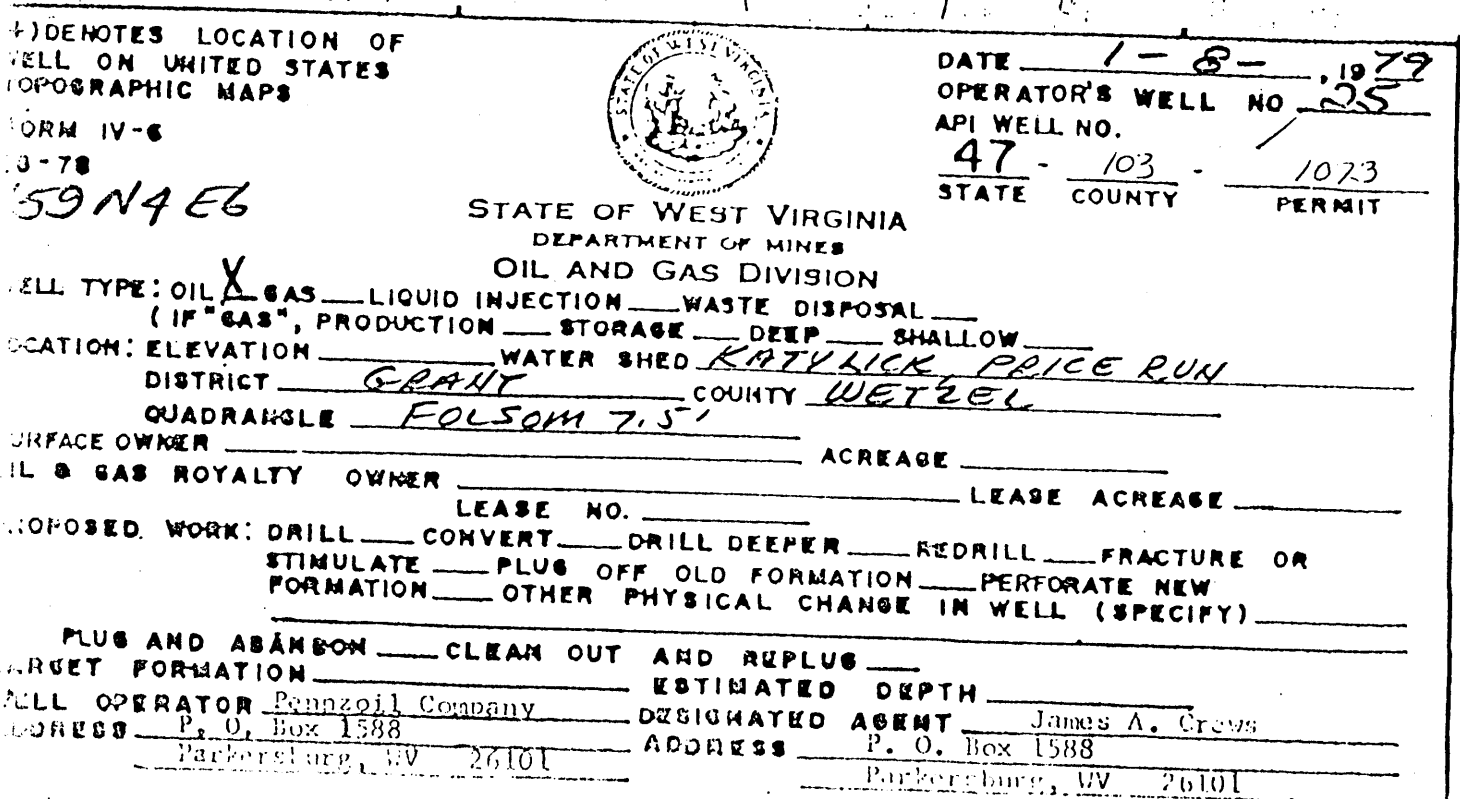 +) DENOTES LOCATION OF
ELL ON UNITED STATES
OPOGRAPHIC MAPS
ORM IV-6
-78
59N4E6
STATE OF WEST VIRGINIA
DATE 1-8-, 1979
OPERATOR'S WELL NO 25
API WELL NO.
47 - 103 - 1073
STATE COUNTY PERMIT
STATE OF WEST VIRGINIA
DEPARTMENT OF MINES
OIL AND GAS DIVISION
ELL TYPE: OIL X GAS ___ LIQUID INJECTION ___ WASTE DISPOSAL ___
(IF "GAS", PRODUCTION ___ STORAGE ___ DEEP ___ SHALLOW ___
OCATION: ELEVATION ___ WATER SHED KATYLICK, PRICE RUN
DISTRICT GRANT COUNTY WETZEL
QUADRANGLE FOLSOM 7.5'
URFACE OWNER ___ ACREAGE ___
IL & GAS ROYALTY OWNER ___ LEASE ACREAGE ___
LEASE NO. ___
ROPOSED WORK: DRILL ___ CONVERT ___ DRILL DEEPER ___ REDRILL ___ FRACTURE OR
STIMULATE ___ PLUG OFF OLD FORMATION ___ PERFORATE NEW
FORMATION ___ OTHER PHYSICAL CHANGE IN WELL (SPECIFY) ___
PLUG AND ABANDON ___ CLEAN OUT AND REPLUG ___
ARGET FORMATION ___ ESTIMATED DEPTH ___
ELL OPERATOR Pennzoil Company DESIGNATED AGENT James A. Crews
DDRESS P. O. Box 1588 ADDRESS P. O. Box 1588
Parkersburg, WV 26101 Parkersburg, WV 26101